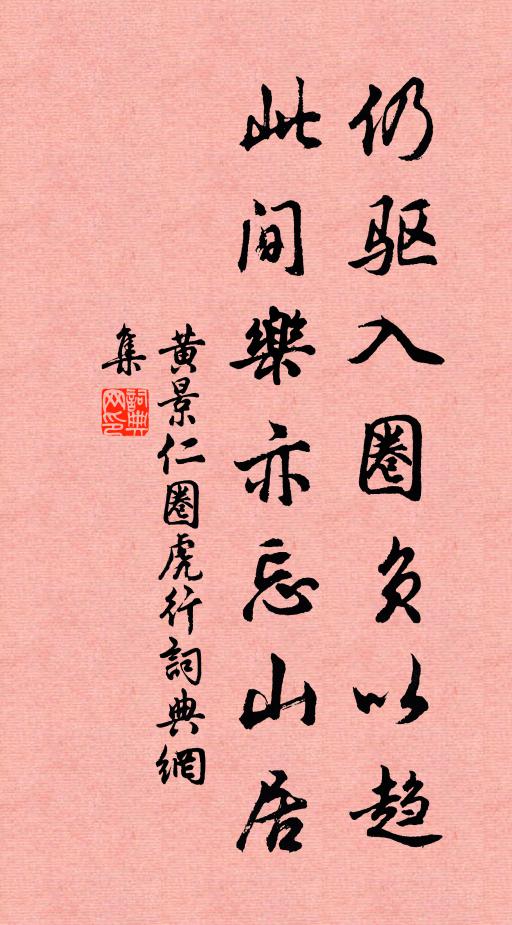 仍驱入圈负以趋
此间樂亦忘山居
黄景仁圈虎行詞典網
集
詞典网印